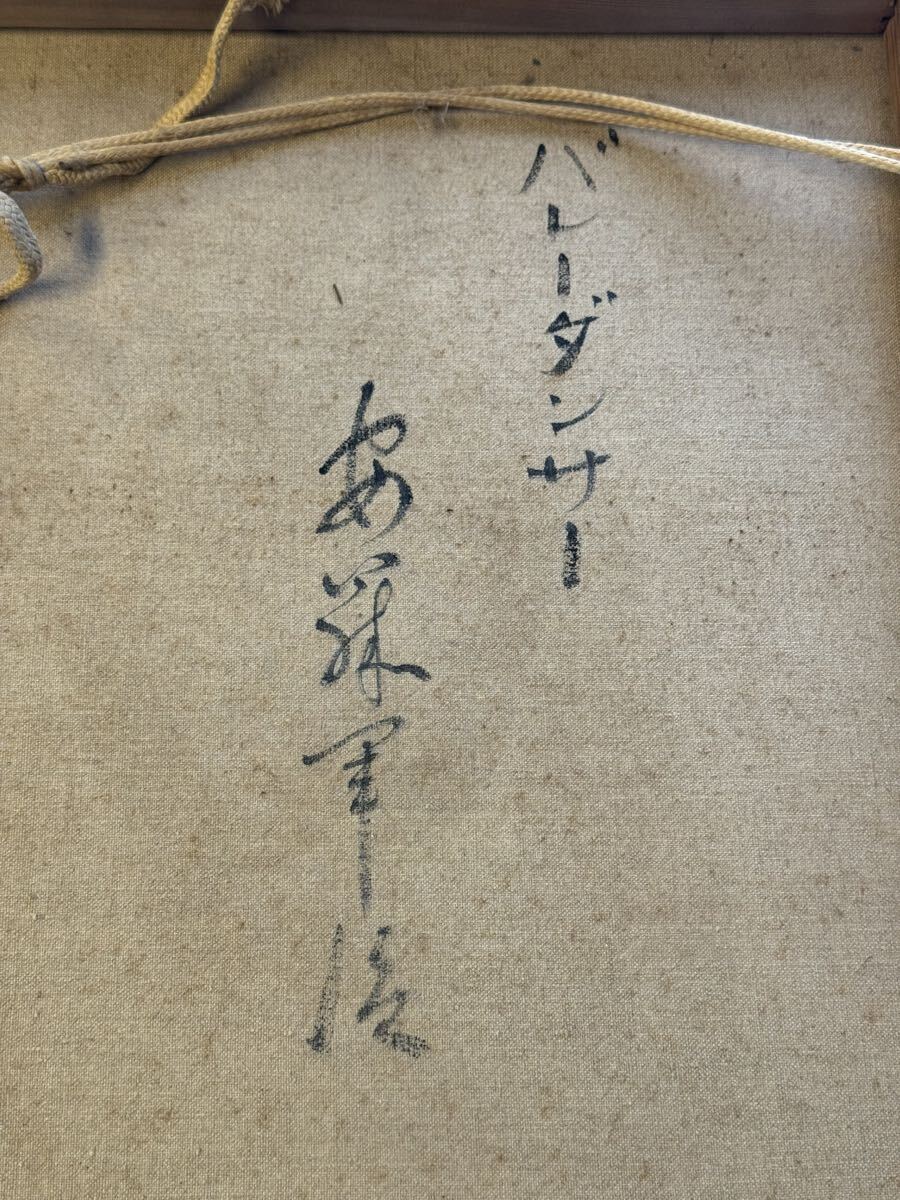 バレーダンサー
安藤軍治